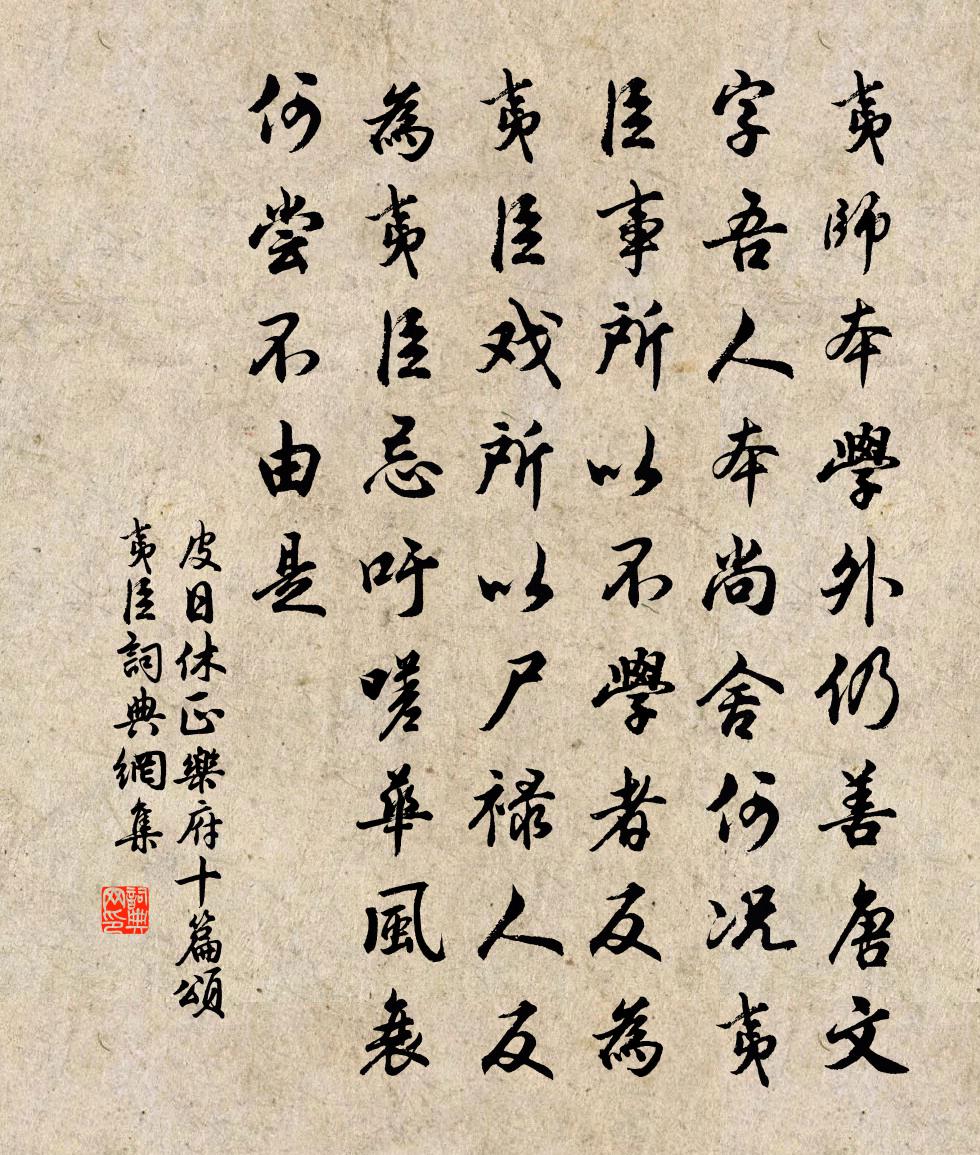 夷師本學外仍善唐文
字吾人本尚舍何況夷
臣事所以不學者反為
夷臣戏所以尸禄人反
為夷臣忌吁嗟華風衰
何尝不由是
皮日休正樂府十篇頌
夷臣詞典網集
詞典网印